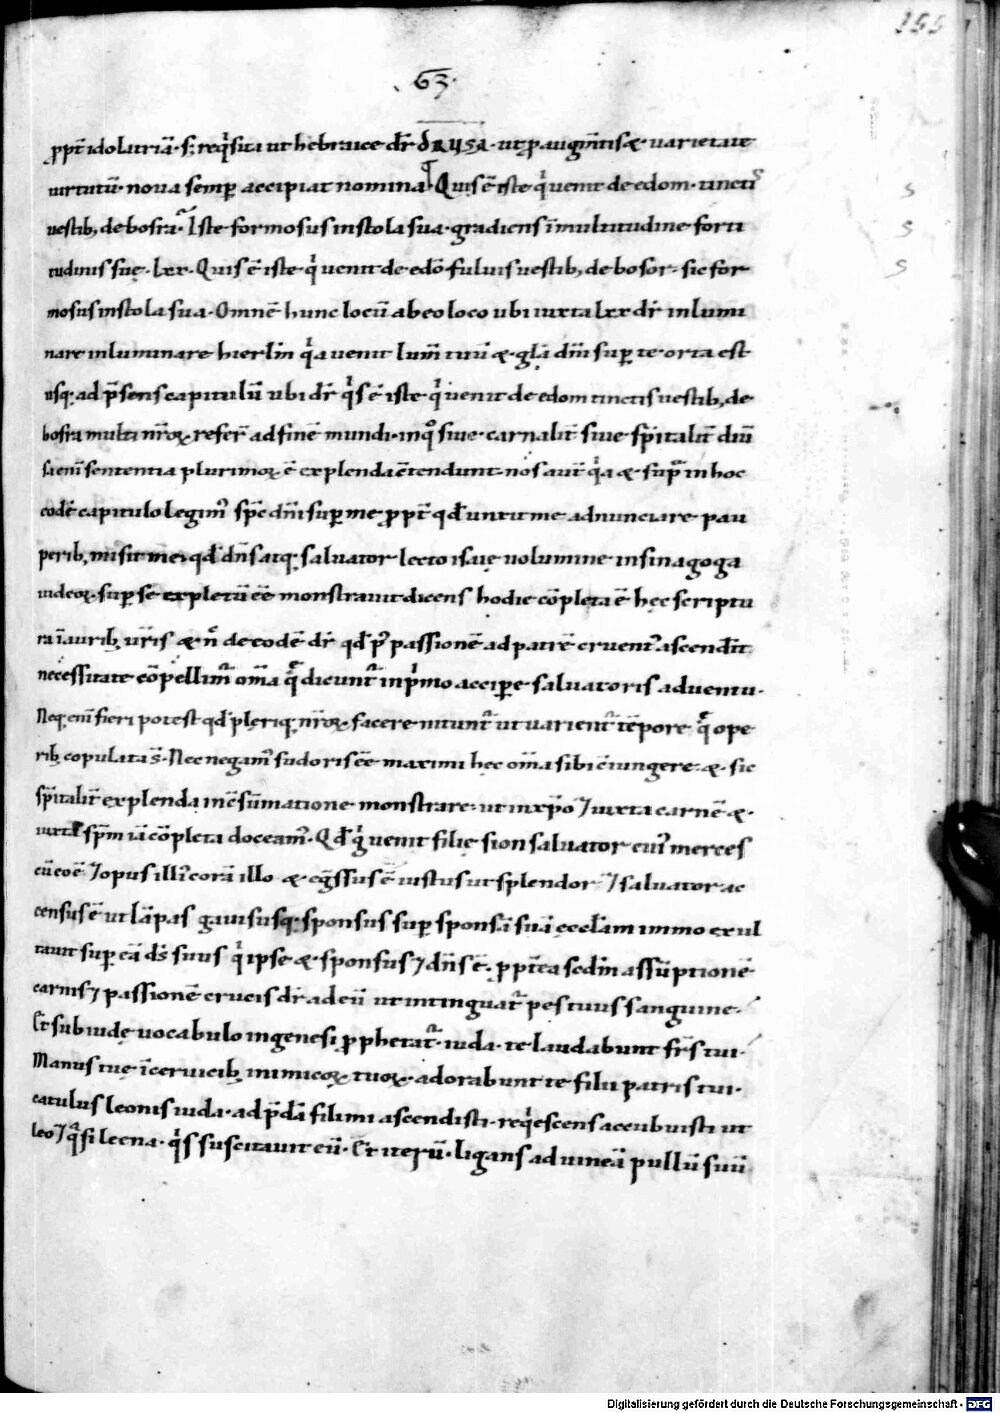 255
63.
ꝓpt̄ idolatriā· s; reqͥsita ut hebraice dr̄ dRYSA· ut ꝓ augm̄tis &· uarietate
uirtutū· noua semꝑ accipiat nomina· Quis ē iste qͥ uenit de edom· tinctis
uestib; de bosra· Iste formosus in stola sua· gradiens ī multitudine forti
tudinis suę· Lxx· Quis ē iste qͥ uenit de edō fuluis uestib; de bosor· sic for
mosus in stola sua· Omnē hunc locū ab eo loco ubi iuxta lxx dr̄ inlumi
nare inluminare hierlm̄ qͥa uenit lum̄ tuū &· glā dn̄i suꝑ te· orta est
usq; ad p̄sens capitulū ubi dr̄ qͥs ē iste qͥ uenit de edom tinctis uestib; de
bosra multi nr̄oꝝ referr̄ ad finē mundi· inqͦ siue· carnalit̄ siue sp̄italit̄ diū
sa enī sententia plurimoꝝ ē explenda c̄tendunt· nos aut̄ qͥa &· supͣ in hoc
eodē capitulo legimꝰ sp̄c dn̄i suꝑ me· ꝓpt̄ qd̄ unxit me adnunciare pau
perib; misit me· qd̄ dn̄s atq; saluator lecto isaię uolumine in sinagoga
iudeoꝝ· suꝑ se expletū eē monstrauit dicens hodie cōpleta ē hęc scriptu
ra ī aurib; ur̄is &· n̄ de eodē dr̄ qd̄ pꝰ passionē ad patrē cruentꝰ ascendit
necessitate cōpellimꝰ om̄a qͣ dicunt̄ in pͥmo accipere saluatoris aduentu·
Neq; enī fieri potest qd̄ pleriq; nr̄oꝝ· facere nitunt̄ ut uarient̄ tēpore qͣ ope
rib; copulata s̄· Nec negamꝰ sudoris eē maximi hęc om̄a sibi c̄iungere· &· sic
sp̄italit̄ explenda in c̄sūmatione monstrare· ut in xp̄o ⁊ iuxta carnē &·
iuxta sp̄m iā cōpleta doceamꝰ· Qd̄ qͥ uenit filię sion saluator cuiꝰ merces
cū eo ē ⁊ opus illiꝰ corā illo &· egͣssus ē iustus ut splendor ⁊ saluator ac
census ē ut lāpas gauisusq; sponsus suꝑ sponsā suā ęccl̄am immo exul
tauit suꝑ eā ds̄ suus qͥ ipse &· sponsus ⁊ dn̄s ē· ꝓpt̄ea scd̄m assūptionē
carnis ⁊ passionē crucis dr̄ ad eū ut intinguat̄ pes tuus sanguine·
Et sub iudę uocabulo in genesi ꝓphetat̄· iuda· te laudabunt fr̄s tui·
Manus tuę ī ceruicib; inimicoꝝ tuoꝝ· adorabunt te filii patris tui·
catulus leonis iuda· ad p̄dā fili mi ascendisti· reqͥescens accubuisti ut
leo ⁊ qͣsi leena· qͥs suscitauit eū· Et iterū· ligans ad uineā pullū suū
Digitalisierung gefördert durch die Deutsche Forschungsgemeinschaft - DFG